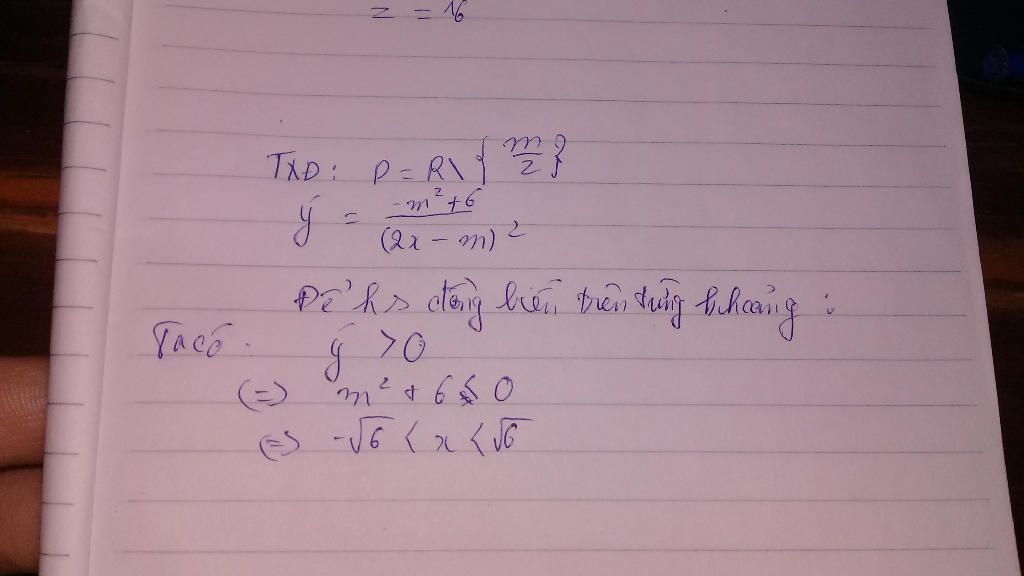 z = 16
TXĐ: D = R\{m/2}
y' = (-m²+6)/(2x - m)²
Để hs đồng biến trên từng khoảng :
Ta có : y' > 0
(=) m² + 6 < 0
(=) -√6 < x < √6